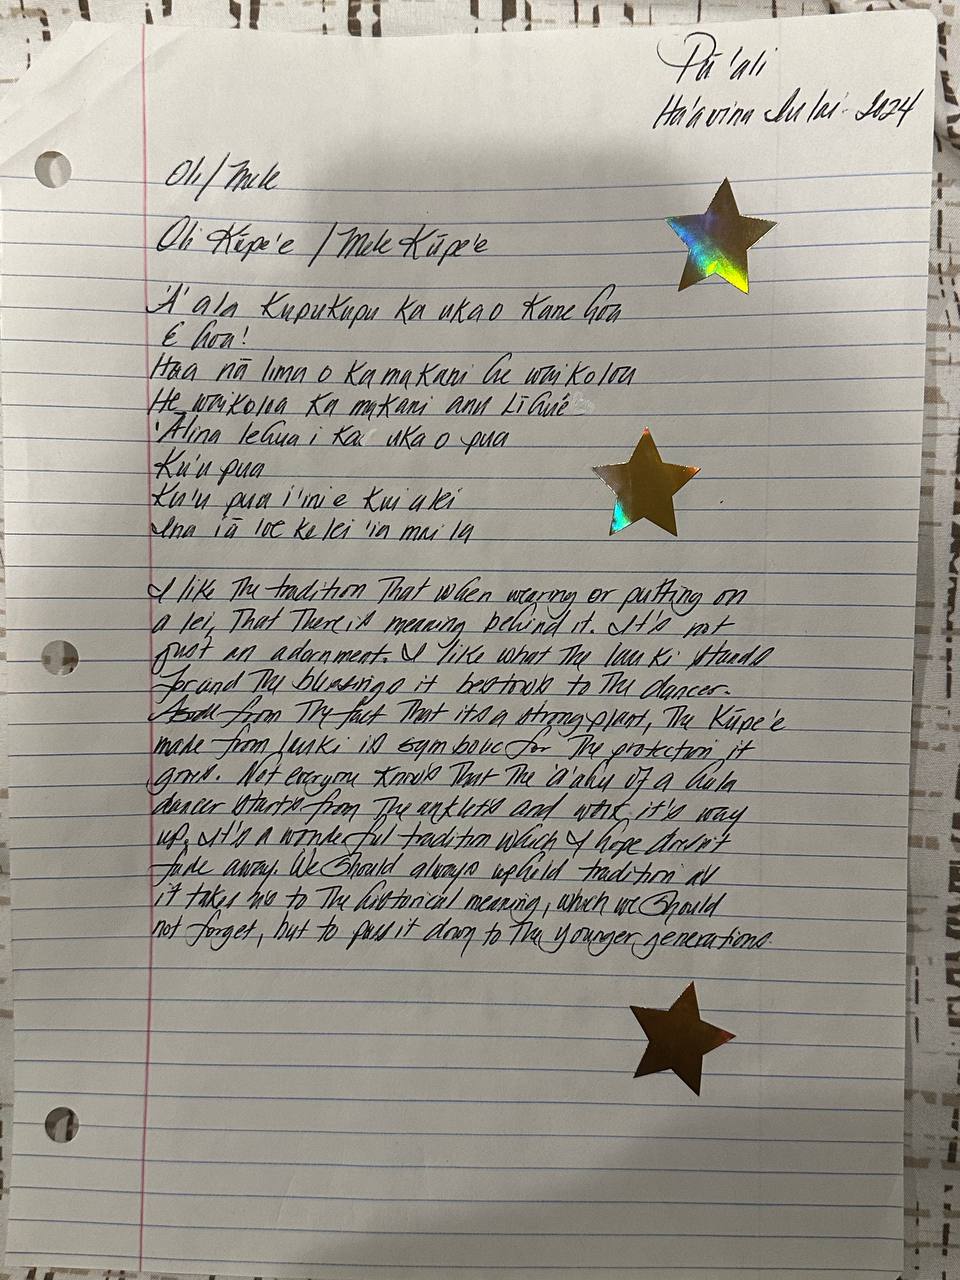 Pū 'ali
Ha'awina Iulai - 2024
Oli/Mele
Oli Kūpe'e / Mele Kūpe'e
'A' ala Kupukupu ka uka o Kane hoa
E hoa!
Hoa nā lima o ka makani he waikoloa
He waikoloa ka makani anu Līhu'e
'Alina lehua i ka uka o pua
Ku'u pua
Ku'u pua i'ini e kui a lei
Ina iā 'oe ke lei 'ia mai la
I like the tradition that when wearing or putting on
a lei, that there is meaning behind it. It's not
just an adornment. I like what the lau ki stands
for and the blessings it bestows to the dancer.
from the fact that its a strong plant, the Kūpe'e
made from lauki is symbolic for the protection it
gives. Not everyone knows that the 'a'ahu of a hula
dancer starts from the anklets and work it's way
up. It's a wonderful tradition which I hope doesn't
fade away. We should always uphold tradition as
it takes us to the historical meaning, which we should
not forget, but to pass it down to the younger generations.